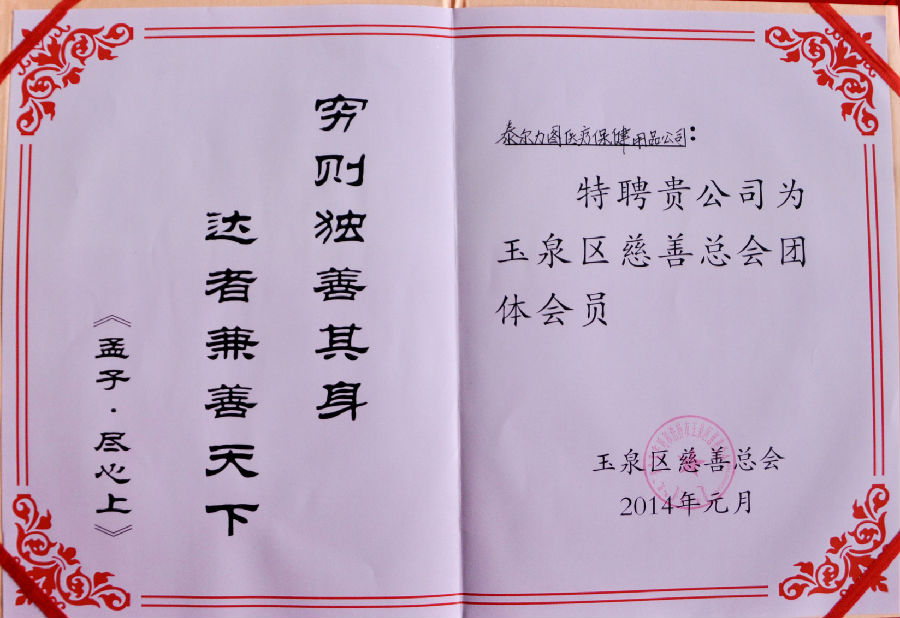 穷则独善其身
达者兼善天下
《孟子·尽心上》
泰尔力图医疗保健用品公司：
特聘贵公司为
玉泉区慈善总会团
体会员
玉泉区慈善总会
2014年元月